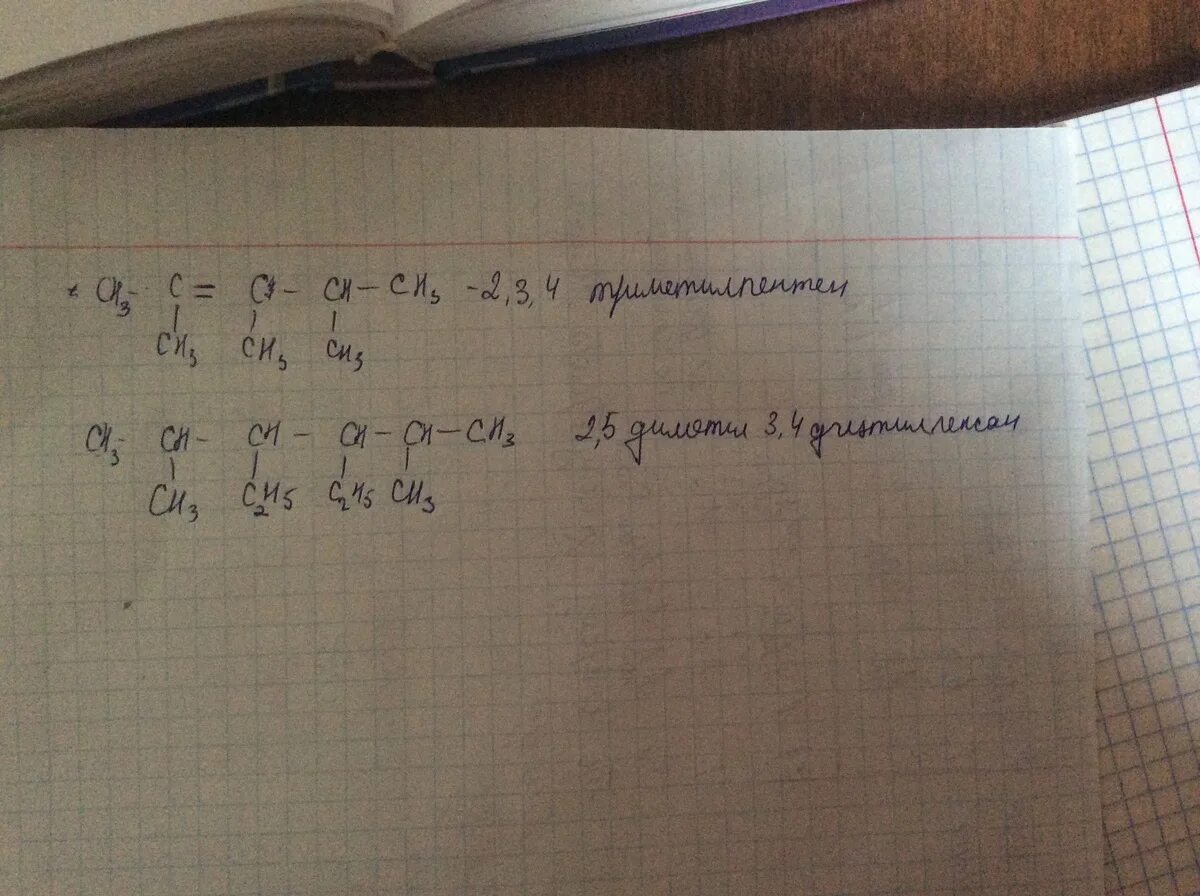 CH₃- C = C - CH - CH₃ -2,3,4 триметилпентен
CH₃ CH₃ CH₃
CH₃- CH - CH - CH - CH - CH₃ 2,5 диметил 3,4 диэтилгексан
CH₃ C₂H₅ C₂H₅ CH₃